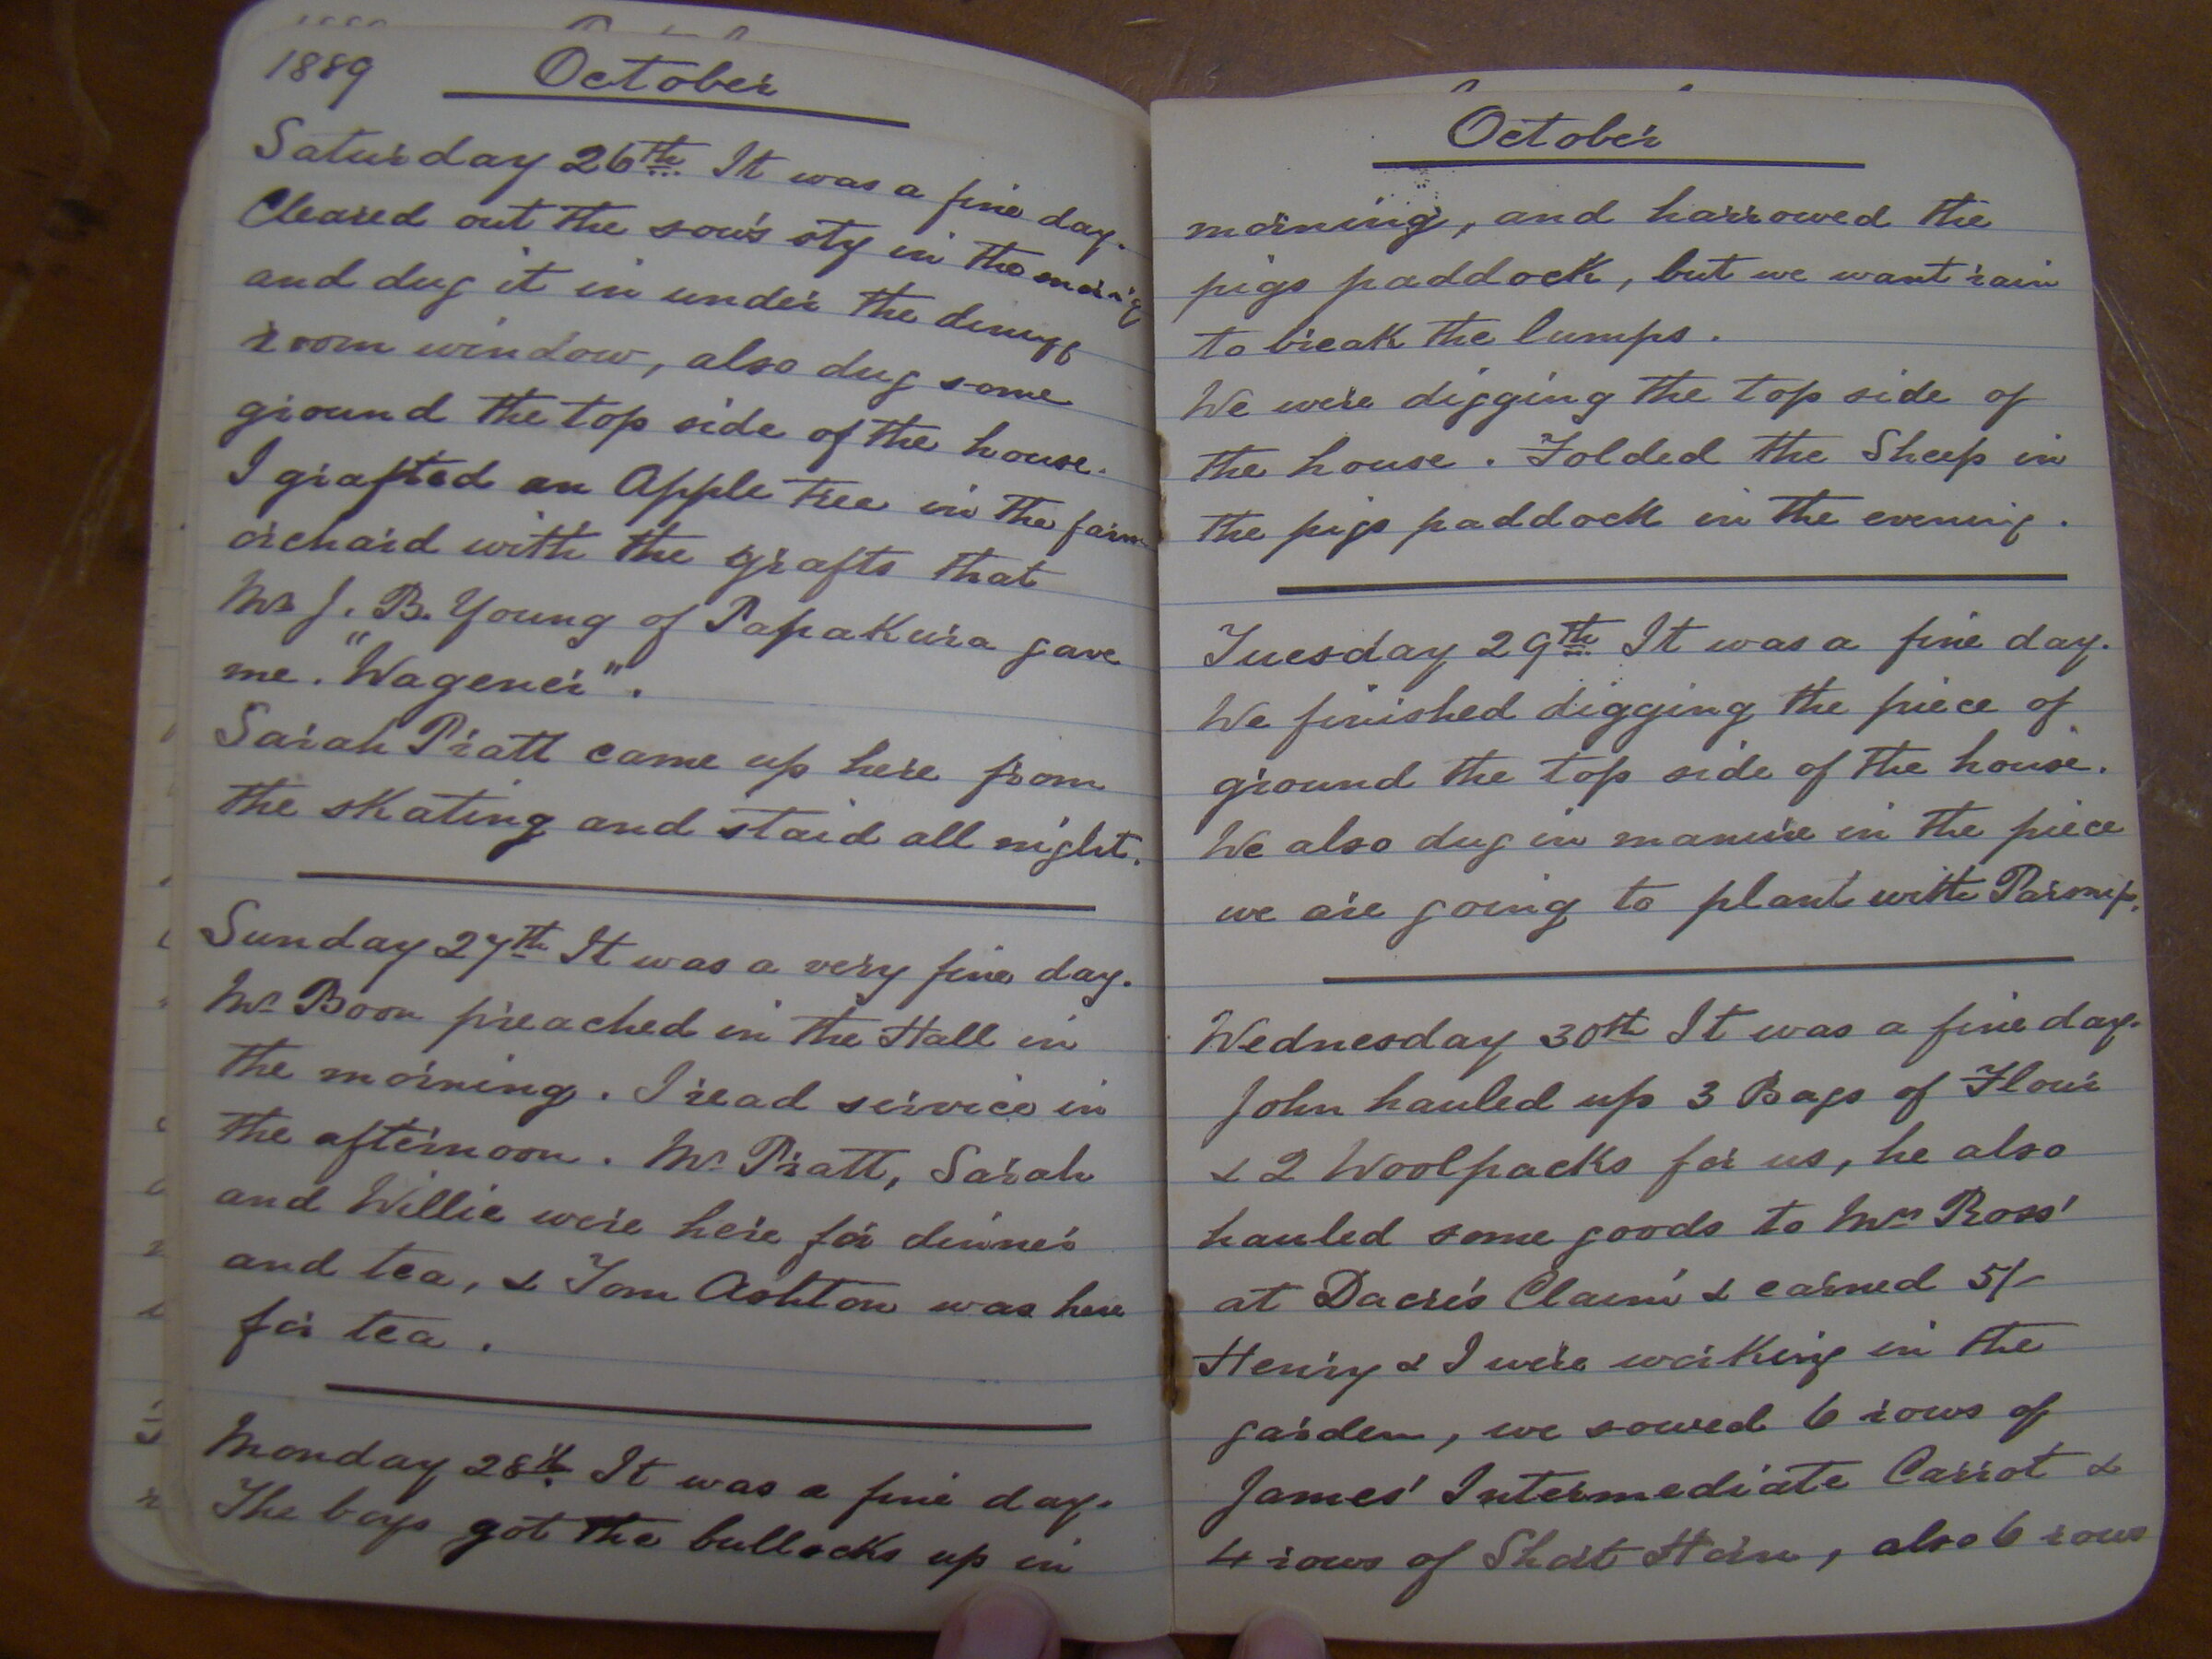 1889 October
Saturday 26th It was a fine day.
Cleared out the sow's sty in the morning
and dug it in under the dining
room window, also dug some
ground the top side of the house.
I grafted an Apple tree in the farm
orchard with the grafts that
Mr J. B. Young of Papakura gave
me. "Wagener".
Sarah Pratt came up here from
the skating and staid all night.
Sunday 27th It was a very fine day.
Mr Boon preached in the Hall in
the morning. I read service in
the afternoon. Mr Pratt, Sarah
and Willie were here for dinner
and tea, & Tom Ashton was here
for tea.
Monday 28th It was a fine day.
The boys got the bullocks up in
October
morning, and harrowed the
pigs paddock, but we want rain
to break the lumps.
We were digging the top side of
the house. Folded the Sheep in
the pigs paddock in the evening.
Tuesday 29th It was a fine day.
We finished digging the piece of
ground the top side of the house.
We also dug in manure in the piece
we are going to plant with Parsnip.
Wednesday 30th It was a fine day.
John hauled up 3 Bags of Flour
& 2 Woolpacks for us, he also
hauled some goods to Mrs Ross'
at Dacre's Claim & earned 5/-
Henry & I were working in the
garden, we sowed 6 rows of
James' Intermediate Carrot &
4 rows of Short Horn, also 6 rows